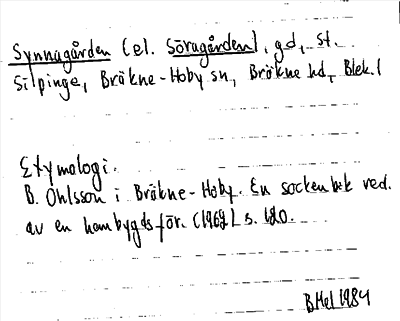 Synnagården (el. Söragården), gd, St.
Silpinge, Bräkne-Hoby sn, Bräkne hd, Blek. l
Etymologi.
B. Ohlsson i Bräkne-Hoby. En sockenbok red.
av en hembygdsför. (1969) s. 120.
BHel 1984